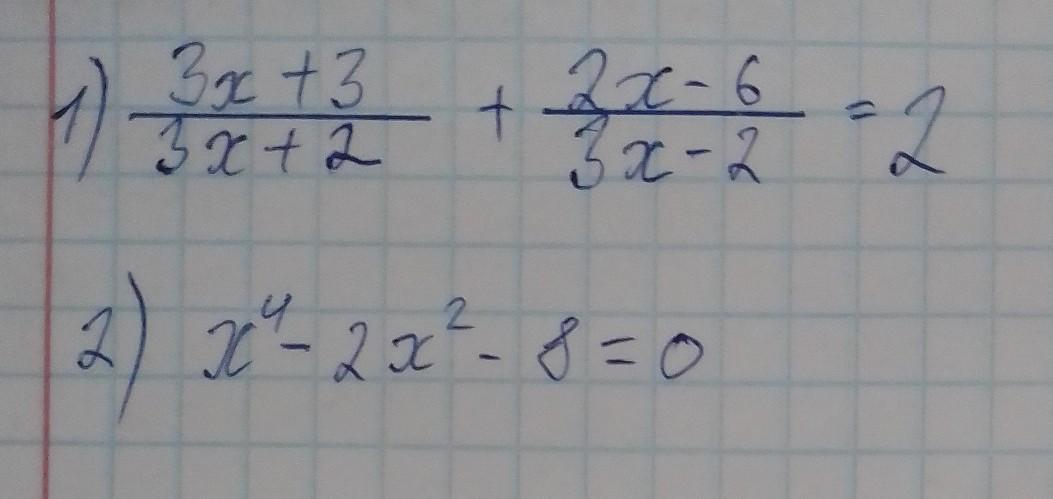 1) (3x + 3)/(3x + 2) + (2x - 6)/(3x - 2) = 2
2) x⁴ - 2x² - 8 = 0